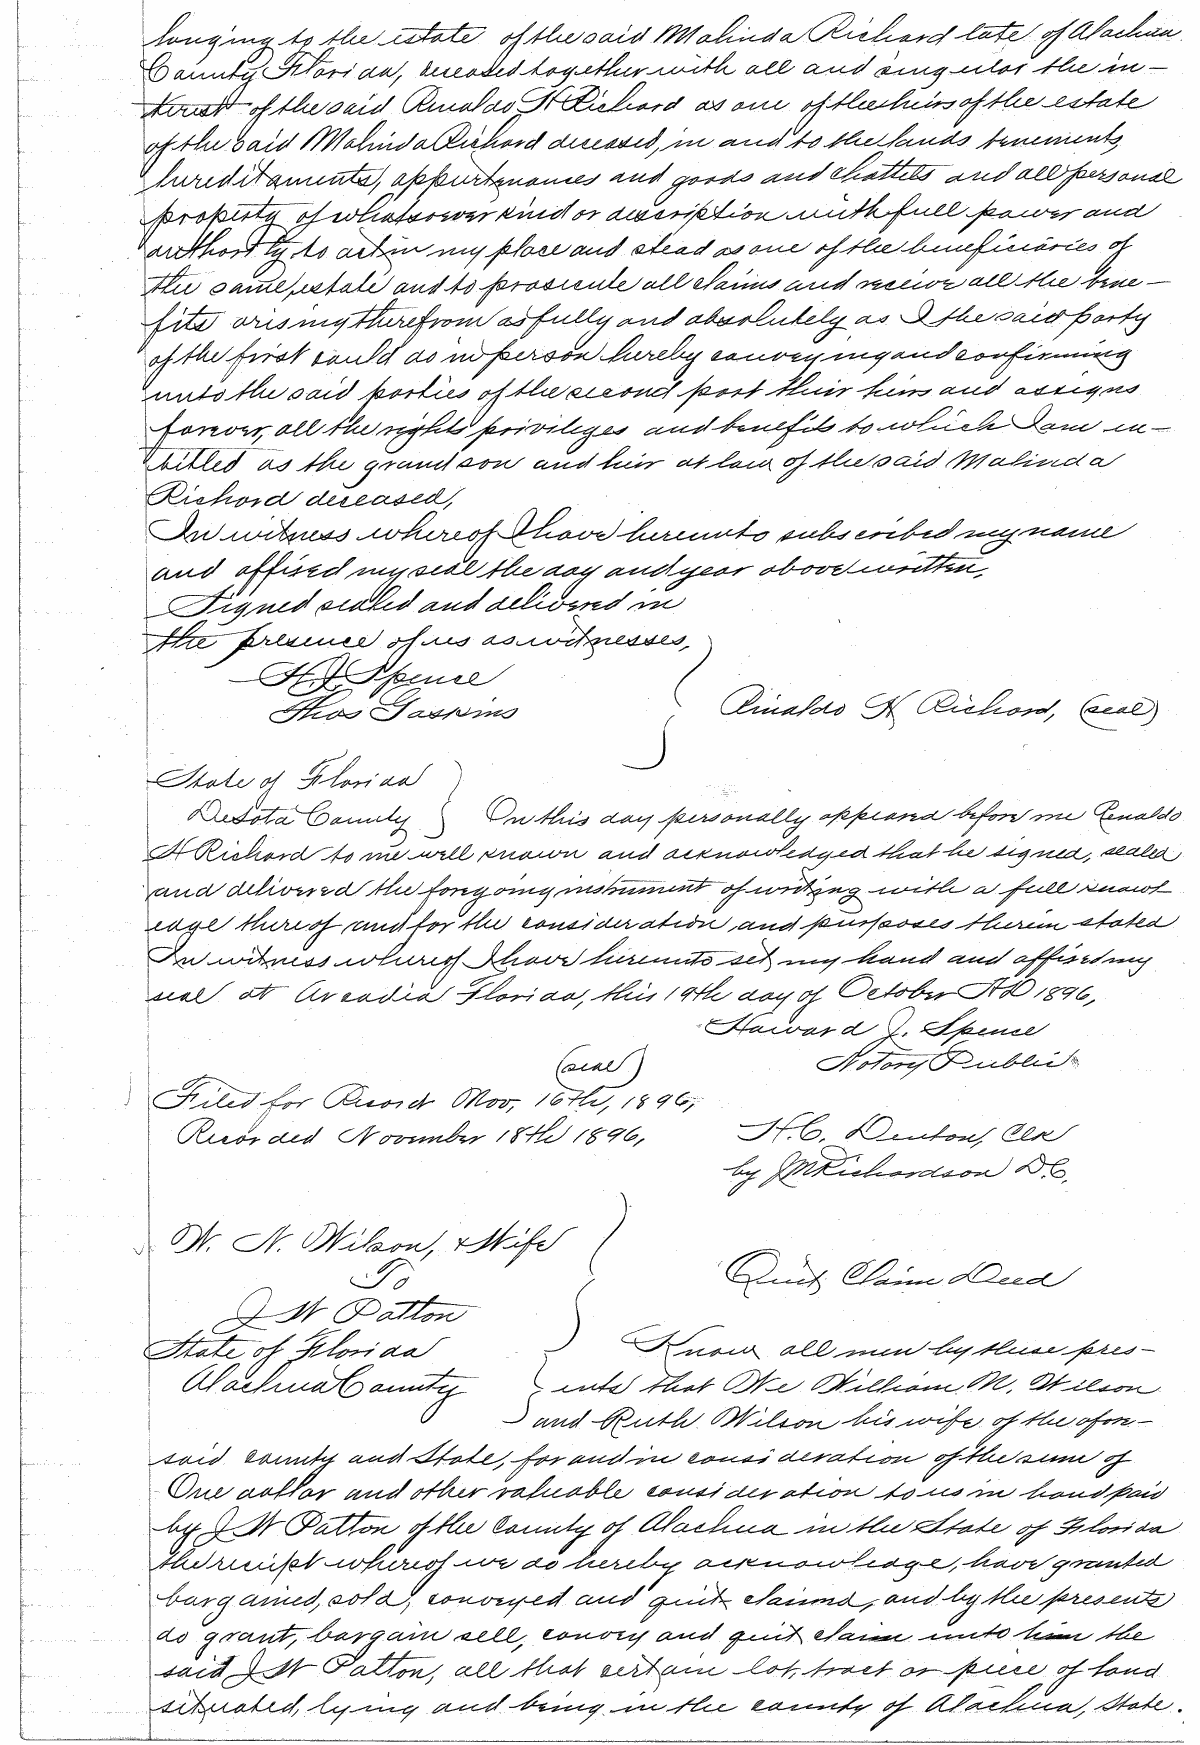 longing to the estate of the said Malinda Richard late of Alachua
County Florida, deceased together with all and singular the in-
terest of the said Rinaldo H Richard as one of the heirs of the estate
of the said Malinda Richard deceased, in and to the lands tenements,
hereditaments, appurtenances and goods and chattels and all personal
property of whatsoever kind or description with full power and
authority to act in my place and stead as one of the beneficiaries of
the same estate and to prosecute all claims and receive all the bene-
fits arising therefrom as fully and absolutely as I the said party
of the first could do in person hereby conveying and confirming
unto the said parties of the second part their heirs and assigns
forever, all the rights privileges and benefits to which I am en-
titled as the grandson and heir at law of the said Malinda
Richard deceased,
In witness whereof I have hereunto subscribed my name
and affixed my seal the day and year above written,
Signed sealed and delivered in
the presence of us as witnesses,
H. J. Spence
Thos Gaskins
Rinaldo H Richard, (seal)
State of Florida
DeSota County } On this day personally appeared before me Renaldo
H Richard to me well known and acknowledged that he signed, sealed
and delivered the foregoing instrument of writing with a full knowl
edge thereof and for the consideration and purposes therein stated
In witness whereof I have hereunto set my hand and affixed my
seal at Arcadia Florida, this 19th day of October AD 1896,
Howard J. Spence
(seal) Notary Public
Filed for Record Nov, 16th, 1896,
Recorded November 18th 1896, H. C. Denton, Clk
by J M Richardson D.C.
W. N. Wilson, & Wife
To
Quit Claim Deed
J W Patton
State of Florida
Know all men by these pres-
Alachua County } ents that We William M. Wilson
and Ruth Wilson his wife of the afore-
said county and State, for and in consideration of the sum of
One dollar and other valuable consideration to us in hand paid
by J W Patton of the County of Alachua in the State of Florida
the receipt whereof we do hereby acknowledge, have granted
bargained, sold, conveyed and quit claimed, and by the presents
do grant, bargain sell, convey and quit claim unto him the
said J W Patton, all that certain lot, tract or piece of land
situated, lying and being in the county of Alachua, State.